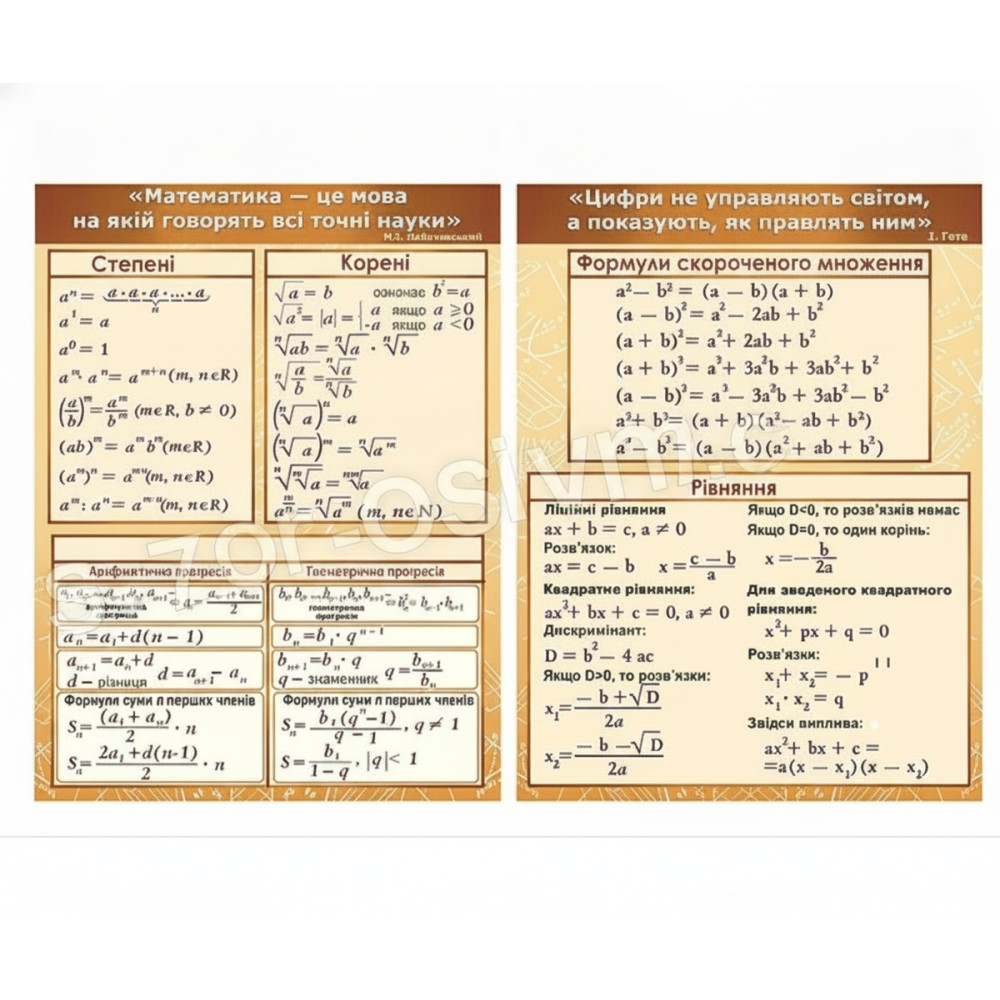 «Математика — це мова
на якій говорять всі точні науки»
Степені
aⁿ = a·a·a·...·a
n
a¹ = a
a⁰ = 1
aᵐ· aⁿ = aᵐ⁺ⁿ (m, n∈R)
(a/b)ᵐ = aᵐ/bᵐ (m∈R, b ≠ 0)
(ab)ᵐ = aᵐbᵐ(m∈R)
(m, n∈R)
(m, n∈R)
Корені
√a = b означає b² = a
= |a| = { a якщо a ≥ 0
-a якщо a < 0
ⁿ√ab = ⁿ√a · ⁿ√b
ⁿ√(a/b) = ⁿ√a / ⁿ√b
(ⁿ√a)ⁿ = a
(ⁿ√a)ᵐ = ⁿ√aᵐ
= ⁿ√aᵐ (m, n∈N)
Арифметична прогресія
aₙ = a₁ + d(n − 1)
aₙ₊₁ = aₙ + d
d – різниця d = aₙ₊₁ − aₙ
Формули суми п перших членів
Sₙ = (a₁ + aₙ)/2 · n
Sₙ = 2a₁ + d(n-1)/2 · n
Геометрична прогресія
bₙ = b₁· qⁿ⁻¹
bₙ₊₁ = bₙ · q
q – знаменник q = bₙ₊₁/bₙ
Формули суми п перших членів
Sₙ = b₁(qⁿ−1)/q − 1, q ≠ 1
S = b₁/1 − q, |q| < 1
«Цифри не управляють світом,
а показують, як правлять ним»
І. Гете
Формули скороченого множення
a² − b² = (a − b)(a + b)
(a − b)² = a² − 2ab + b²
(a + b)² = a² + 2ab + b²
(a + b)³ = a³ + 3a²b + 3ab² + b²
= a³ − 3a²b + 3ab² − b²
a³ + b³ = (a + b)(a² − ab + b²)
a³ − b³ = (a − b)(a² + ab + b²)
Рівняння
Лінійні рівняння
ax + b = c, a ≠ 0
Розв'язок:
ax = c − b x = c − b/a
Квадратне рівняння:
+ bx + c = 0, a ≠ 0
Дискримінант:
D = b² − 4 ac
Якщо D>0, то розв'язки:
x₁ = − b + √D/2a
x₂ = − b − √D/2a
Якщо D<0, то розв'язків немає
Якщо D=0, то один корінь:
x = − b/2a
Для зведеного квадратного
рівняння:
x² + px + q = 0
Розв'язки:
x₁ + x₂ = − p
x₁ · x₂ = q
Звідси виплива:
ax² + bx + c =
=a(x − x₁)(x − x₂)